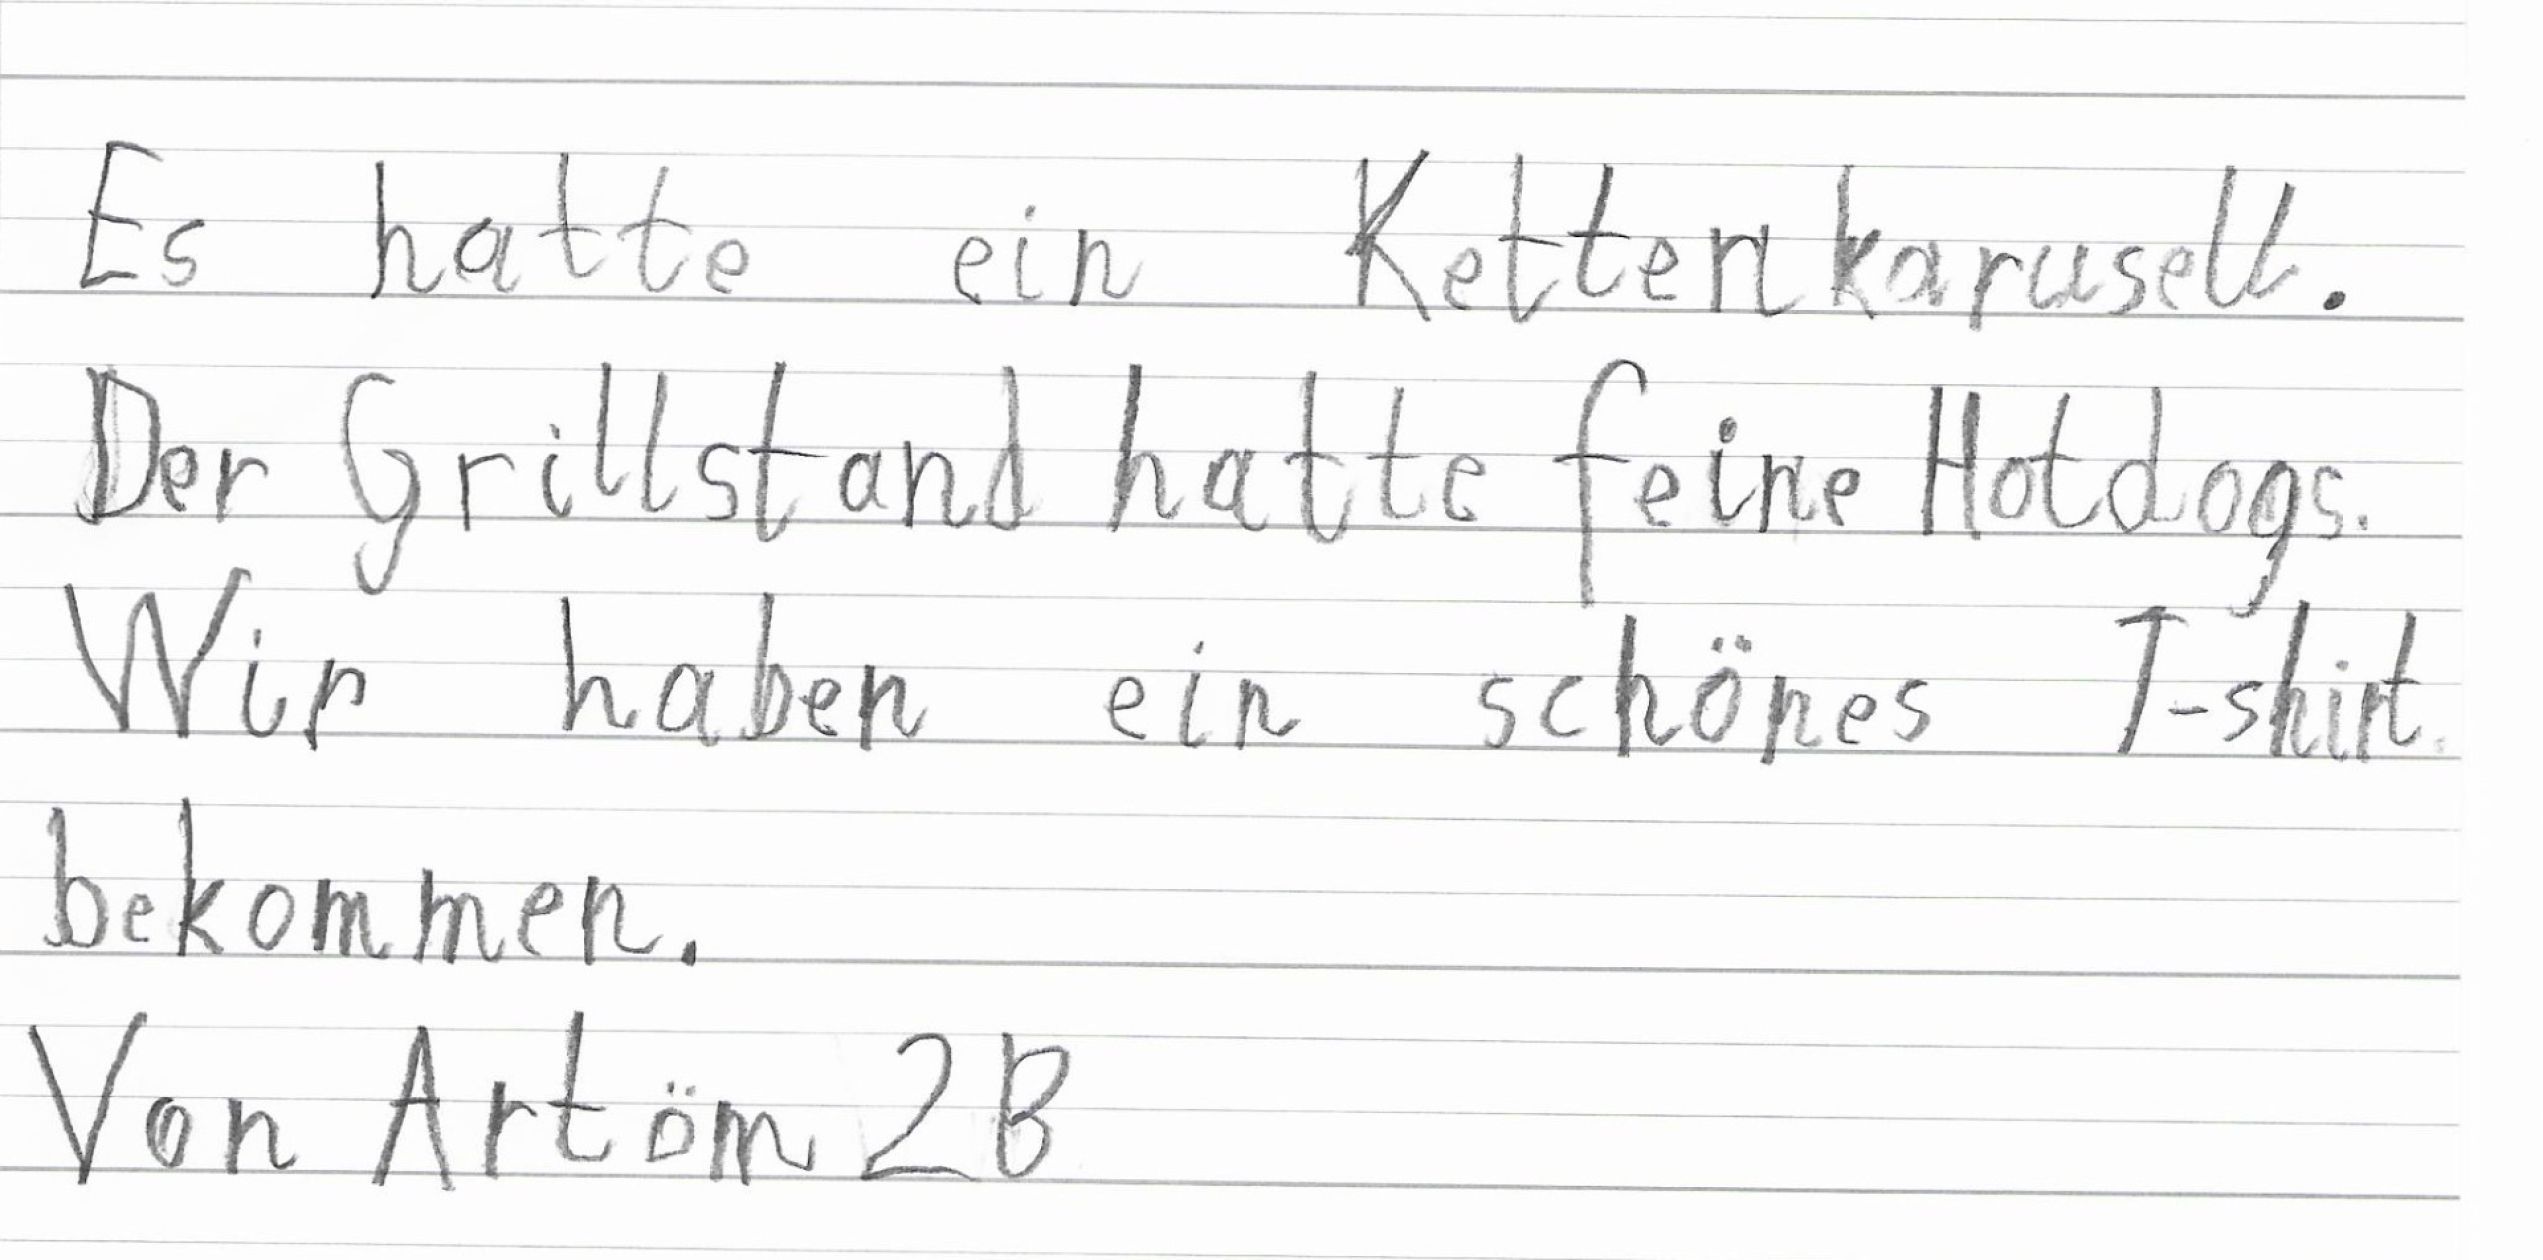 Es hatte ein Kettenkarusell.
Der Grillstand hatte feine Hotdogs.
Wir haben ein schönes T-shirt.
bekommen.
Von Artöm 2B